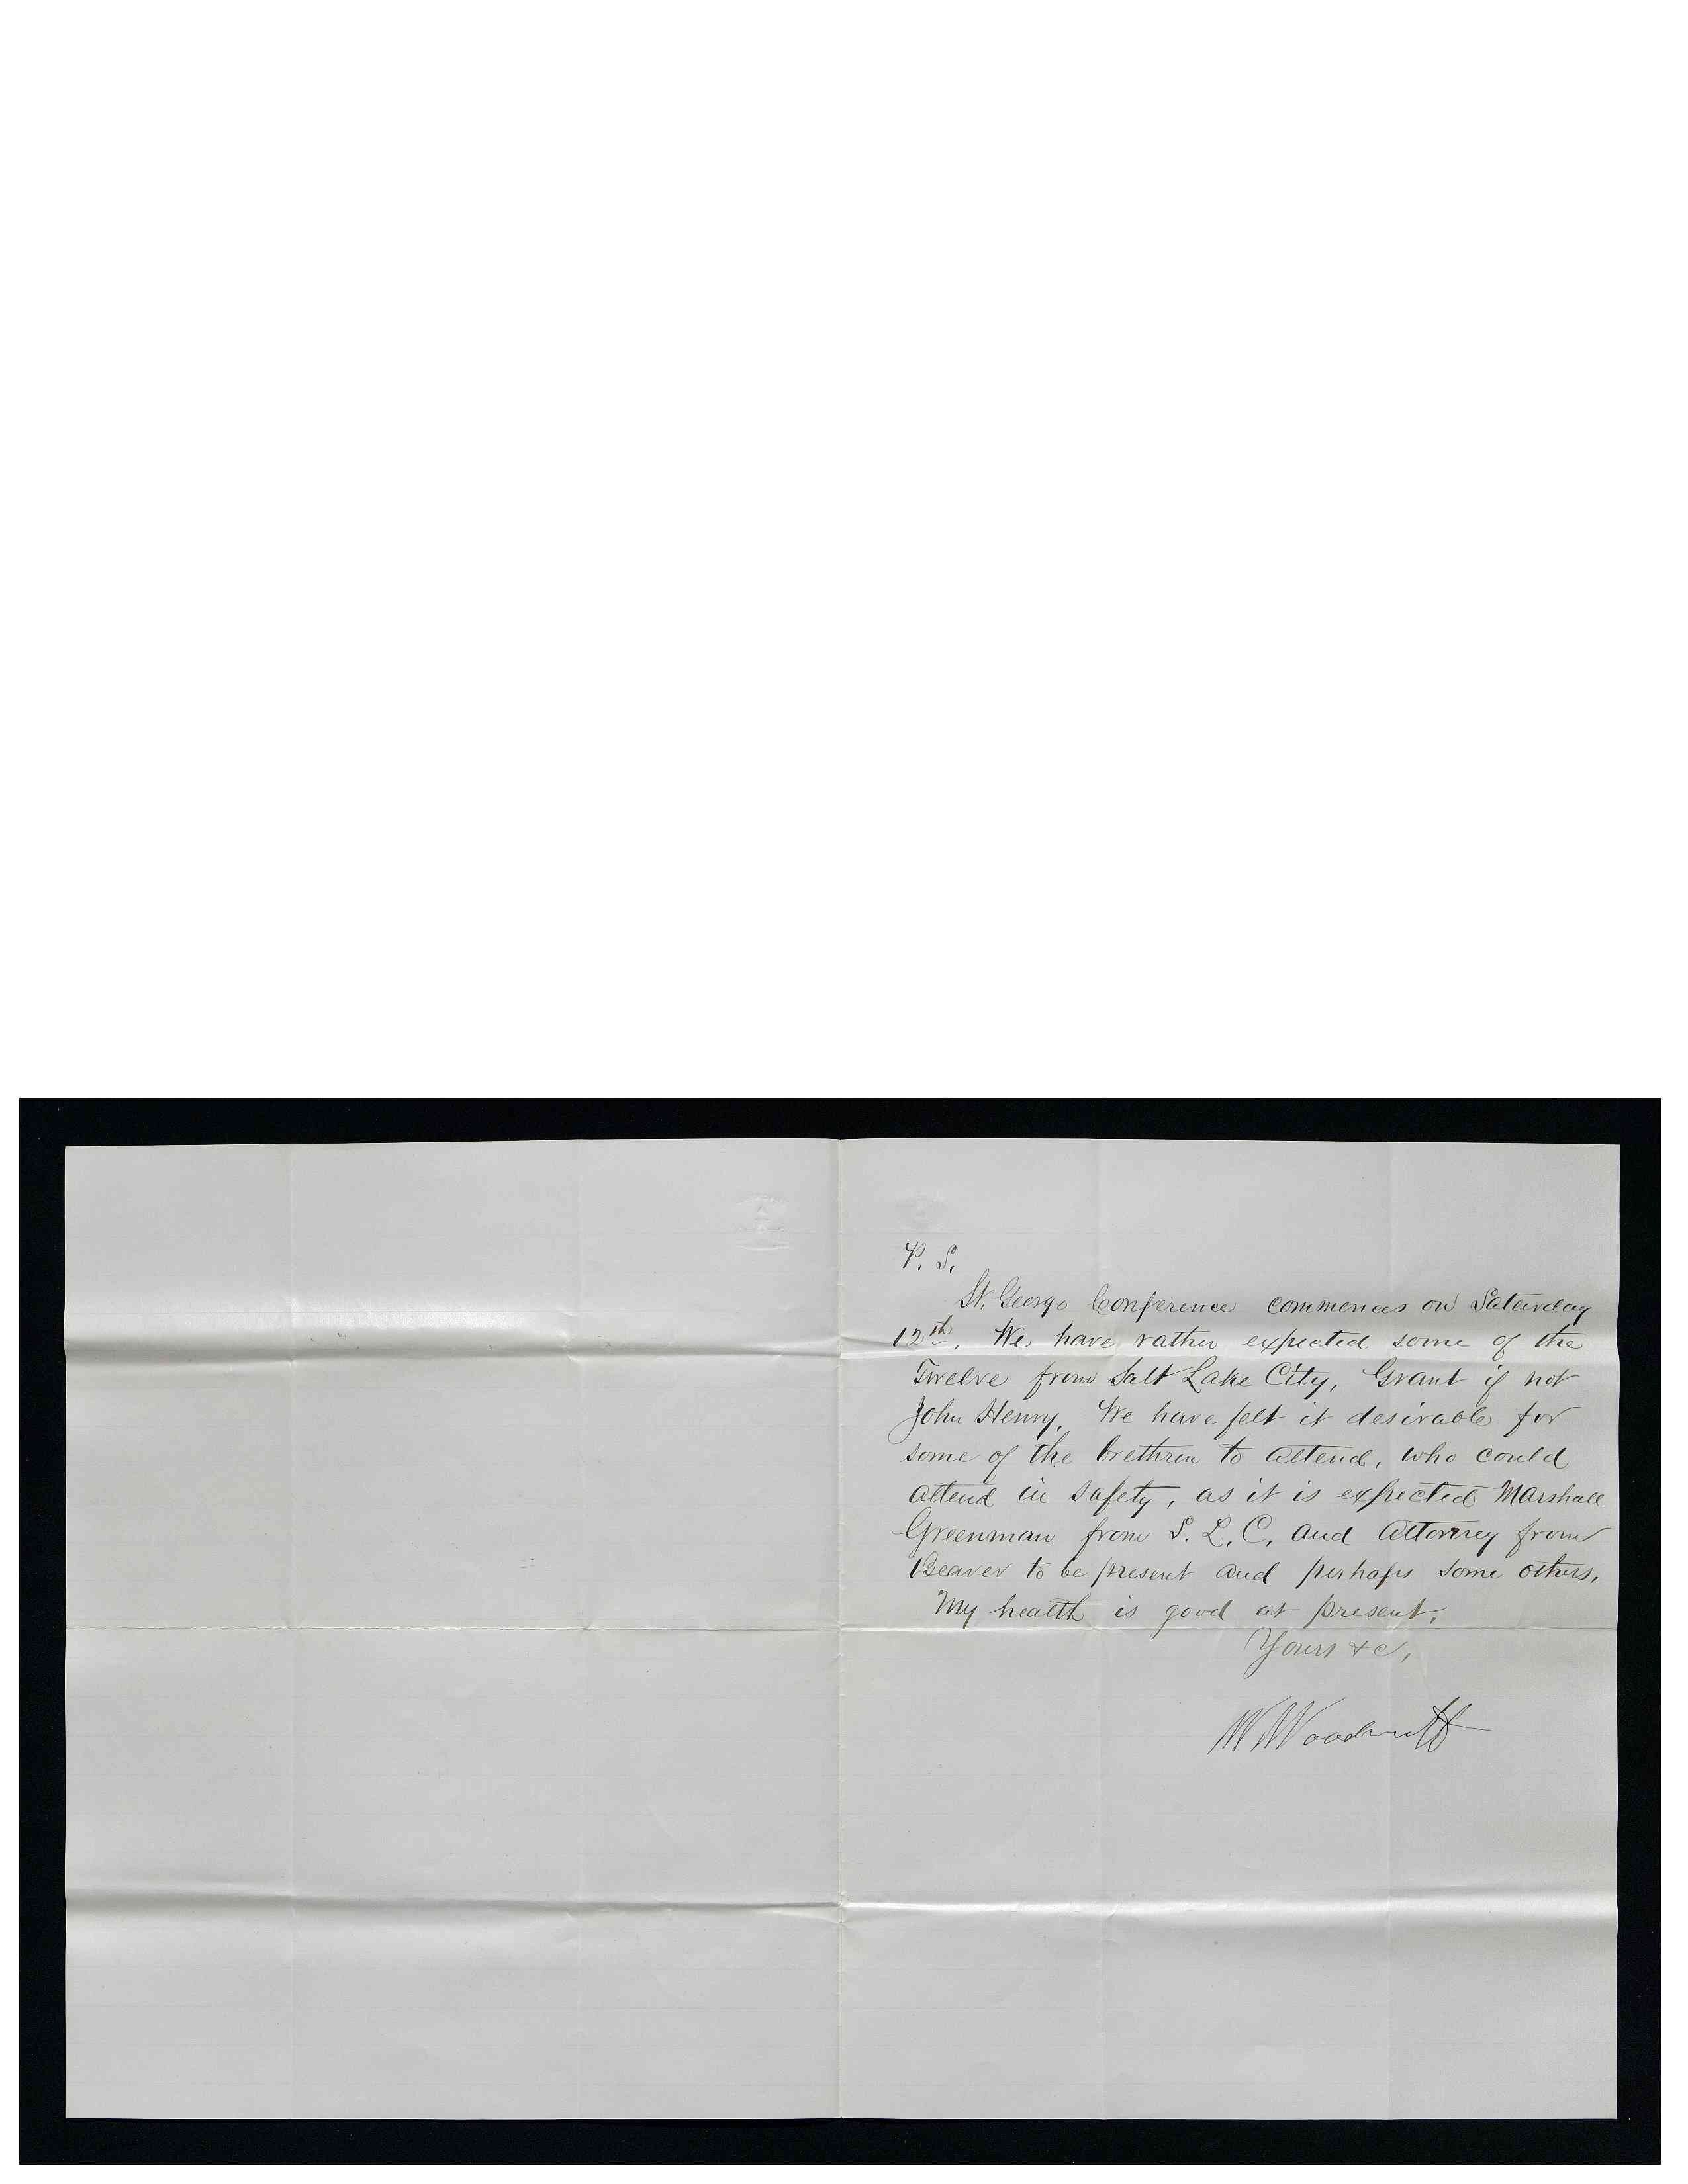 P. S.
St. George Conference commences on Saturday
12th. We have rather expected some of the
Twelve from Salt Lake City, Grant if not
John Henry. We have felt it desirable for
some of the brethren to attend, who could
attend in safety, as it is expected Marshall
Greenman from S. L. C. and Attorney from
Beaver to be present and perhaps some others.
My health is good at present.
Yours &c,
W Woodruff